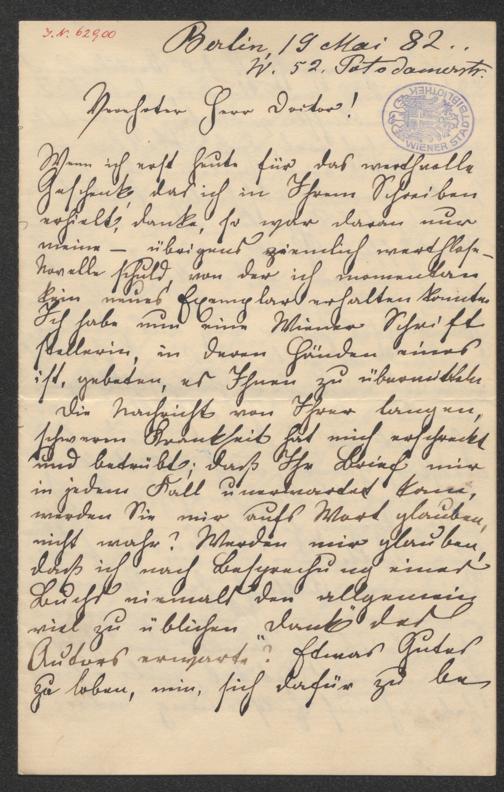 J. N. 62900
Berlin, 19 Mai 82..
W. 52. Potsdamerstr.
WIENER STADTBIBLIOTHEK
Verehrter Herr Doctor!
Wenn ich erst heute für das werthvolle
Geschenk, das ich in Ihrem Schreiben
erhielt, danke, so war daran nur
meine – übrigens ziemlich werthlose –
Novelle schuld von der ich momentan
kein neues Exemplar erhalten konnte.
Ich habe nun eine Wiener Schrift
stellerin, in deren Händen eines
ist, gebeten, es Ihnen zu übermitteln
Die Nachricht von Ihrer langen,
schweren Krankheit hat mich erschreckt
und betrübt; daß Ihr Brief mir
in jedem Fall unerwartet kam,
werden Sie mir aufs Wort glauben,
nicht wahr? Werden mir glauben,
daß ich nach Besprechung eines
Buchs niemals den allgemein
viel zu üblichen "Dank des
Autors erwarte"? Etwas Gutes
zu loben, nun, sich dafür zu be